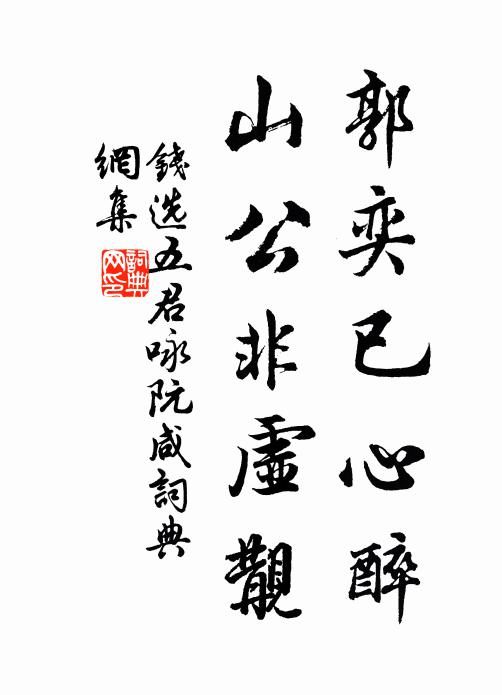 郭奕已心醉
山公非虛觀
錢选五君咏阮咸詞典
網集
詞典
网印